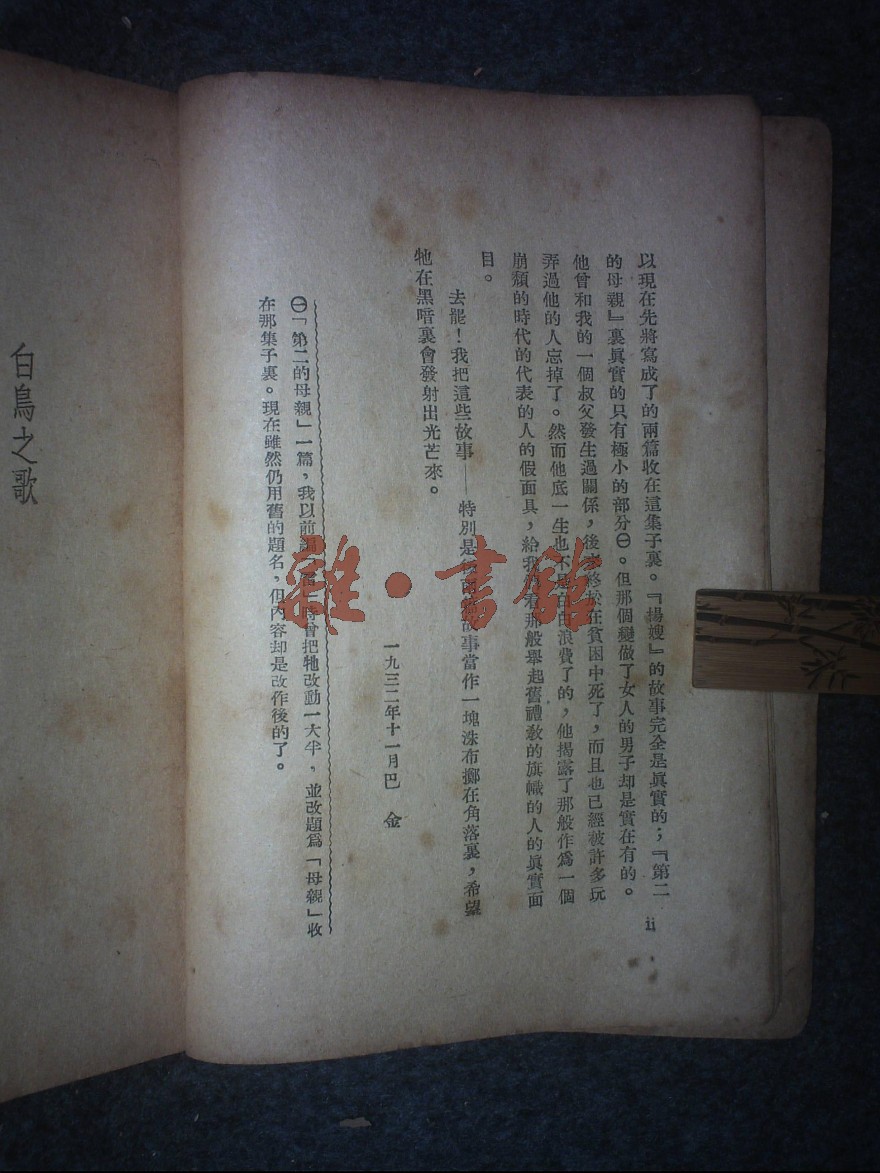 以現在先將寫成了的兩篇收在這集子裏。『楊嫂』的故事完全是眞實的；『第二
的母親』裏眞實的只有極小的部分㊀。但那個變做了女人的男子却是實在有的。
他曾和我的一個叔父發生過關係，後來終於在貧困中死了，而且也已經被許多玩
弄過他的人忘掉了。然而他底一生也不是白白浪費了的，他揭露了那般作爲一個
崩頹的時代的代表的人的假面具，給我看那般舉起舊禮敎的旗幟的人的眞實面
目。
去罷！我把這些故事——特別是後兩篇故事當作一塊洙布擲在角落裏，希望
牠在黑暗裏會發射出光芒來。
一九三二年十一月巴 金
㊀「第二的母親」一篇，我以前編 時曾把牠改動一大半，並改題爲「母親」收
在那集子裏。現在雖然仍用舊的題名，但內容却是改作後的了。
ii
白鳥之歌
雜·書館